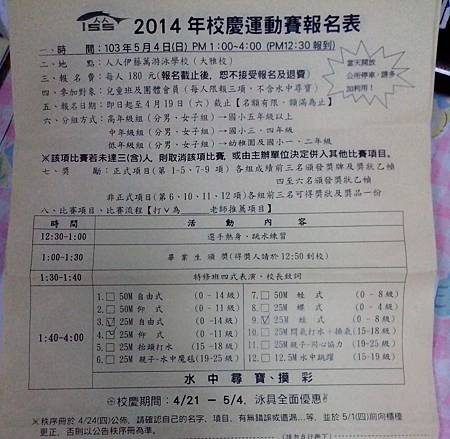 ISS 2014 年校慶運動賽報名表
一、時　　間：103年5月4日(日) PM 1:00~4:00 (PM12:30 報到)
二、地　　點：人人伊藤萬游泳學校（大雅校）
三、報 名 費：每人 180 元(報名截止後，恕不接受報名及退費)
當天開放
公所停車，請多
加利用！
四、參加對象：兒童班及團體會員（每人限報三項，不含水中尋寶）
五、報名日期：即日起至 4 月 19 日（六）截止【名額有限，額滿為止】
六、分組方式：高年級組（分男、女子組）→國小五年級以上
中年級組（分男、女子組）→國小三、四年級
低年級組（分男、女子組）→幼稚園及國小一、二年級
※該項比賽若未達三(含)人，則取消該項比賽，或由主辦單位決定併入其他比賽項目。
七、獎　　勵：正式項目（第 1-5、7-9 項）各組成績前三名頒發獎牌及獎狀乙幀
四至六名頒發獎狀乙幀
非正式項目（第 6、10、11、12 項)各組前三名可得獎狀及獎品一份
八、比賽項目、比賽流程【打∨為　　　老師推薦項目】
時 間　活 動 內 容
12:30-1:00　選手熱身、跳水練習
1:00-1:30　畢 業 生 頒 獎(得獎人請於 12:50 到校)
1:30-1:40　特修班四式表演、校長致詞
1:40-4:00
1.□ 50M 自由式 (0 - 14 級)　7.□ 50M 蛙 式 (0 - 8 級)
2.□ 50M 仰 式 (0 - 11 級)　8.□ 25M 蝶 式 (0 - 4 級)
3.☑ 25M 自由式 (0 - 14級)　9.☑ 25M 蛙 式 (0 - 8級)
4.☑ 25M 仰 式 (0 - 11級)　10.□ 25M 悶氣打水＋換氣(15-18級)
5.□ 25M 抬頭打水 (15-18級)　11.□ 25M 親子-同心協力 (19-25級)
6.□ 25M 親子-水中魔毯(19-25 級)　12.□ 12.5M 水中跳躍 (19-25級)
水 中 尋 寶、摸 彩
◎校慶期間：4/21 － 5/4，泳具全面優惠
※秩序冊於 4/24(四)公佈，請確認自己的名字、項目，有無錯誤或遺漏…等，並於 5/1(四)前向櫃檯
更正，否則以公告秩序冊為準。